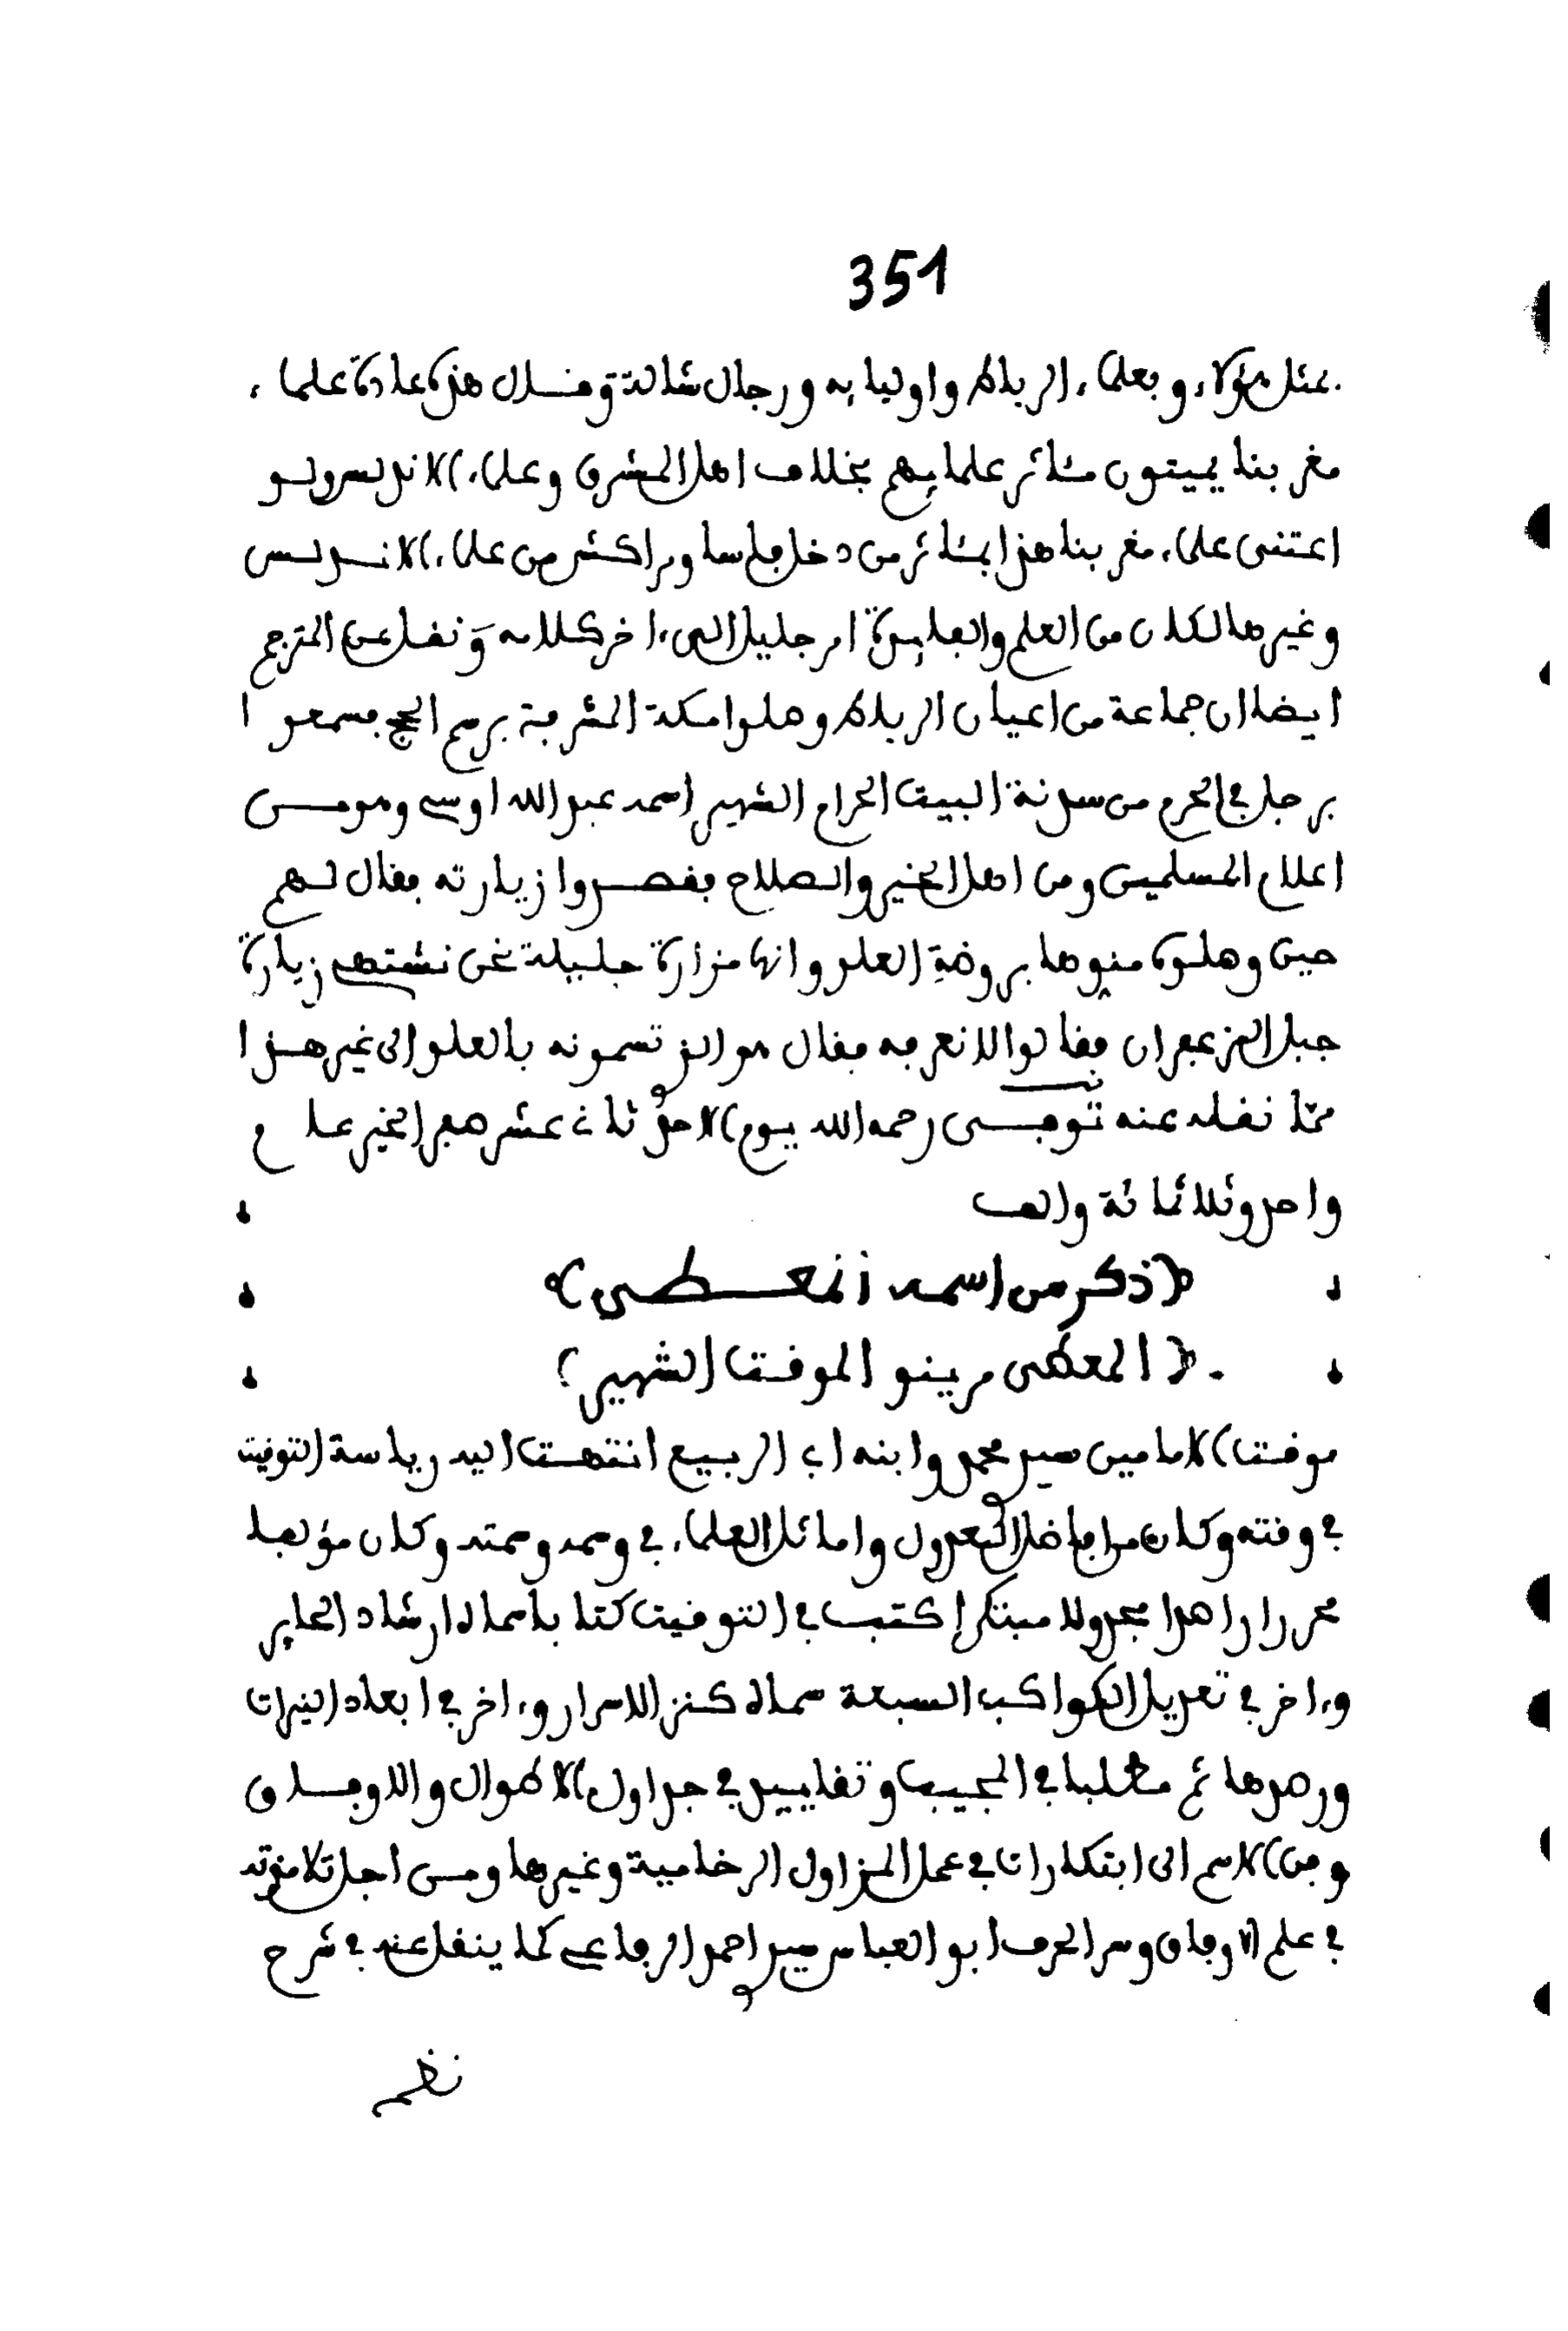 351
بمثل هؤلاء وبعلماء الرباط واوليائه ورجال شالة وقال هذه عادة علماء
مغربنا يميتون مئاثر علمائهم بخلاف اهل المشرق وعلماء الاندلس ولو
اعتنى علماء مغربنا هذا بمئاثر من دخل فاسا ومراكش من علماء الاندلس
وغيرها لكان من العلم والفايدة امر جليل الى ءاخر كلامه ونقل عن المترجم
ايضا ان جماعة من اعيان الرباط وصلوا مكة المشرفة برسم الحج فسمعوا
برجل في الحرم من سدنة البيت الحرام الشهير اسمه عبد الله اوسى وهو من
اعلام المسلمين ومن اهل الخير والصلاح فقصدوا زيارته فقال لهم
حين وصلوه منوها بروضة العلو وانها مزارة جليلة نحن نشتهي زيارة
جبل الزعفران فقالوا لا نعرفه فقال هو الذي تسمونه بالعلو الى غير هذا
مما نقله عنه توفى رحمه الله يوم الاحد ثالث عشر صفر الخير عام
واحد وثلاثمائة والف
﴿ذكر من اسمه المعطى﴾
﴿المعطى مرينو الموقت الشهير﴾
موقت الامامين سيدي محمد وابنه ابي الربيع انتهت اليه رياسة التوقيت
في وقته وكان من افاضل العدول واماثل العلماء في وسمه وسمته وكان مؤلفا
محررا راصدا مجدولا مبتكرا كتب في التوقيت كتابا سماه ارشاد الحاير
وءاخر في تعديل الكواكب السبعة سماه كنز الاسرار وءاخر في ابعاد النيرات
ورصدها ثم مطلبا في المجيب وتقاييد في جداول الاطوال والاوفاق
ومن الاسم الى ابتكارات في عمل المزاول الرخامية وغيرها ومن اجل تلامذته
في علم الاوفاق وسر الحرف ابو العباس سيدي احمد الرفاعي كما ينقل عنه في شرح
نظم